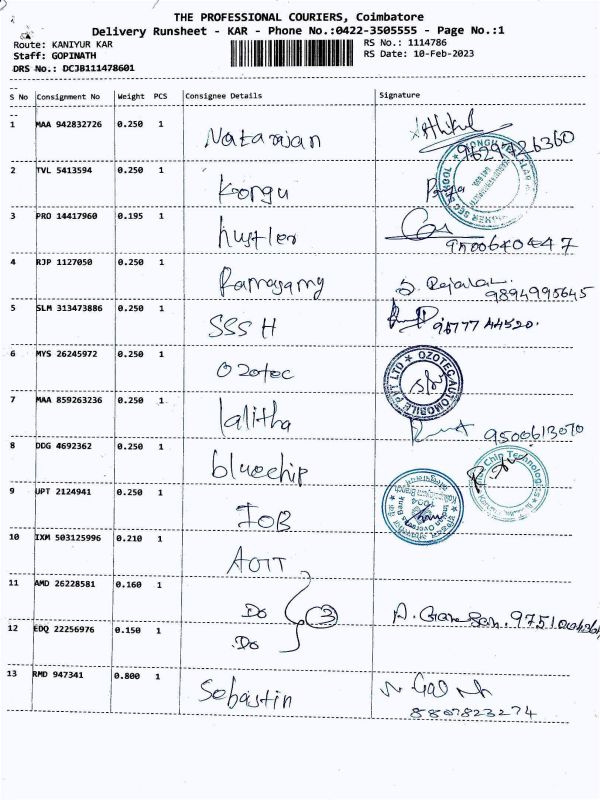 THE PROFESSIONAL COURIERS, Coimbatore
Delivery Runsheet - KAR - Phone No.:0422-3505555 - Page No.:1
Route: KANIYUR KAR RS No.: 1114786
Staff: GOPINATH RS Date: 10-Feb-2023
DRS No.: DCJB111478601
S No Consignment No Weight PCS Consignee Details Signature
1 MAA 942832726 0.250 1 Natarajan
2 TVL 5413594 0.250 1 Kongu
3 PRO 14417960 0.195 1 hustler 9500640447
4 RJP 1127050 0.250 1 Ramasamy 9894995645
5 SLM 313473886 0.250 1 SSS H
6 MYS 26245972 0.250 1 Ozotec OZOTEC AUTOMOBILE PVT LTD
7 MAA 859263236 0.250 1 lalitha 9500613070
8 DDG 4692362 0.250 1 bluechip Chip Technologies
9 UPT 2124941 0.250 1 IOB
10 IXM 503125996 0.210 1 AOIT
11 AMD 26228581 0.160 1 Do 3
12 EDQ 22256976 0.150 1 Do
13 RMD 947341 0.800 1 Sebastin 8807823274